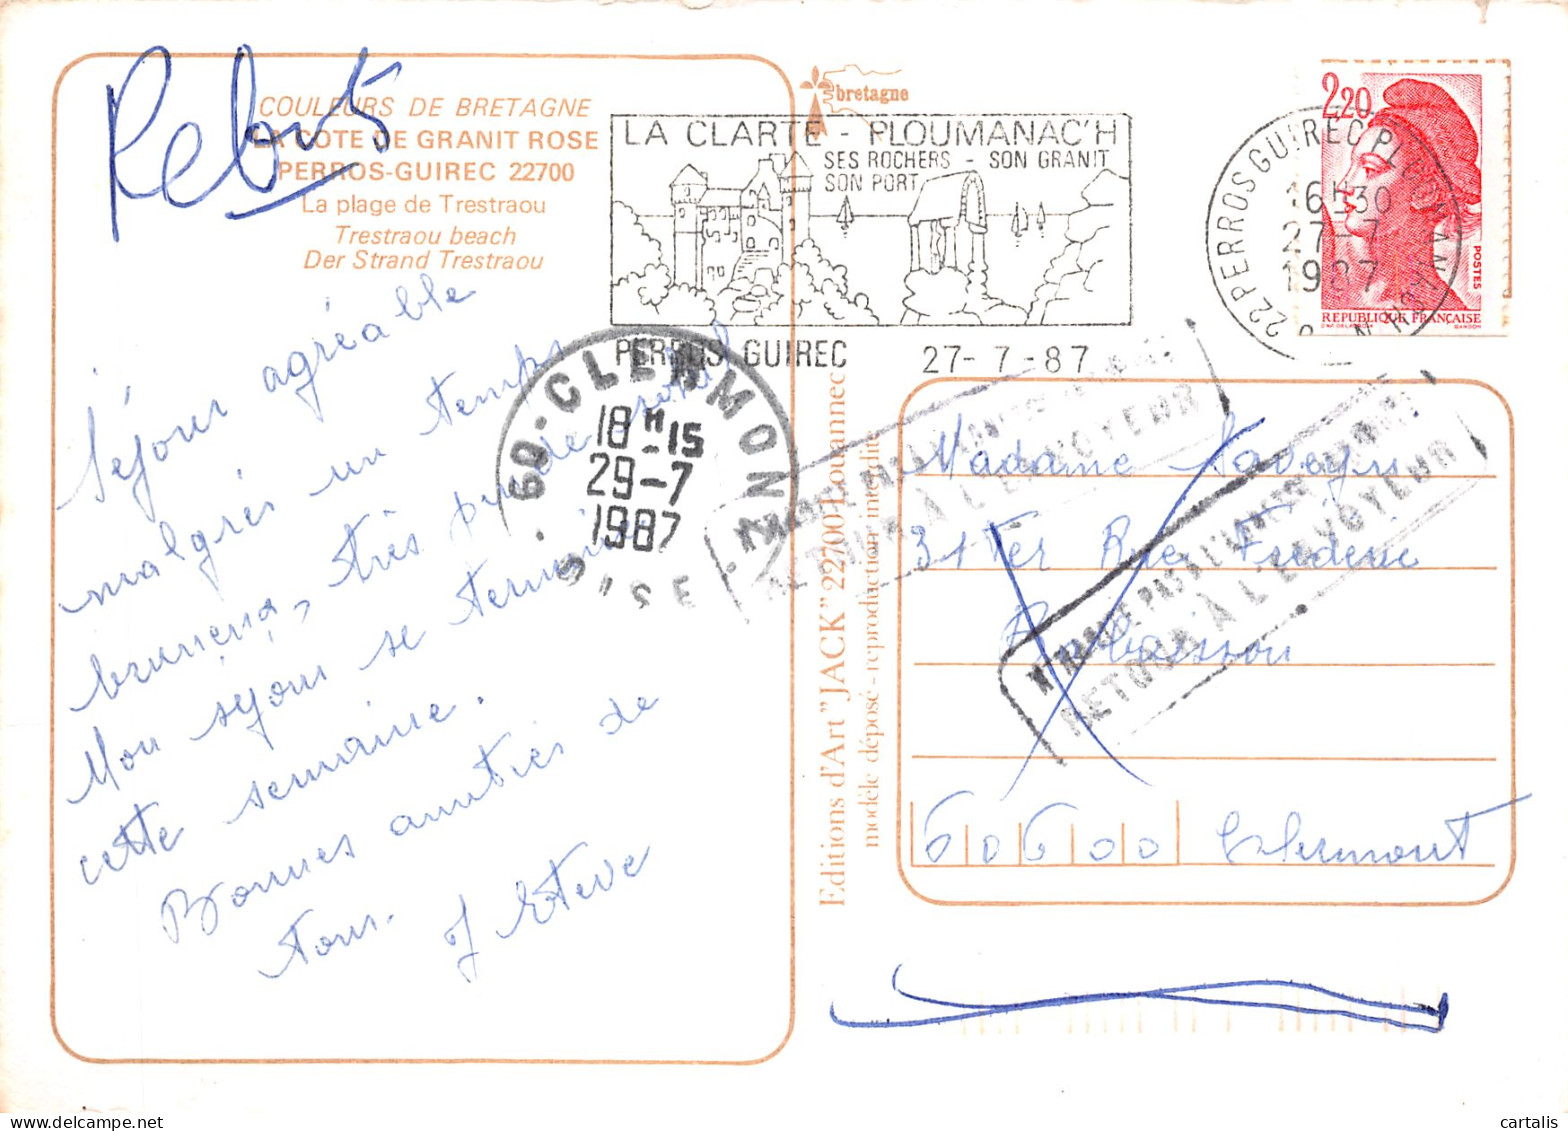 Rebuts
COULEURS DE BRETAGNE
LA COTE DE GRANIT ROSE
PERROS-GUIREC 22700
La plage de Trestraou
Trestraou beach
Der Strand Trestraou
Séjour agréable
malgrés un temps
brumeux, très peu de soleil
Mon séjour se termine
cette semaine.
Bonnes amitiés de
tous.
J Estève
bretagne
LA CLARTE - PLOUMANAC'H
SES ROCHERS - SON GRANIT
SON PORT
PERROS GUIREC 27-7-87
22 PERROS GUIREC PLOUMANACH
16H30
27-7
1987
2,20
POSTES
REPUBLIQUE FRANÇAISE
GANDON
60-CLERMONT
18H15
29-7
1987
OISE
N'HABITE PAS A L'ADRESSE INDIQUÉE
RETOUR À L'ENVOYEUR
N'HABITE PAS A L'ADRESSE INDIQUÉE
RETOUR À L'ENVOYEUR
Editions d'Art "JACK" 22700 Louannec
modèle déposé - reproduction interdite
Madame
31 Ter Rue Fréderic
60600 Clermont
© cartalis